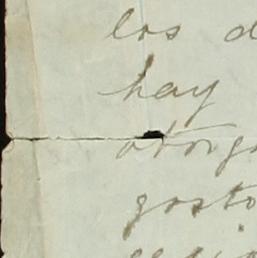 los d
hay
otorg
gasto